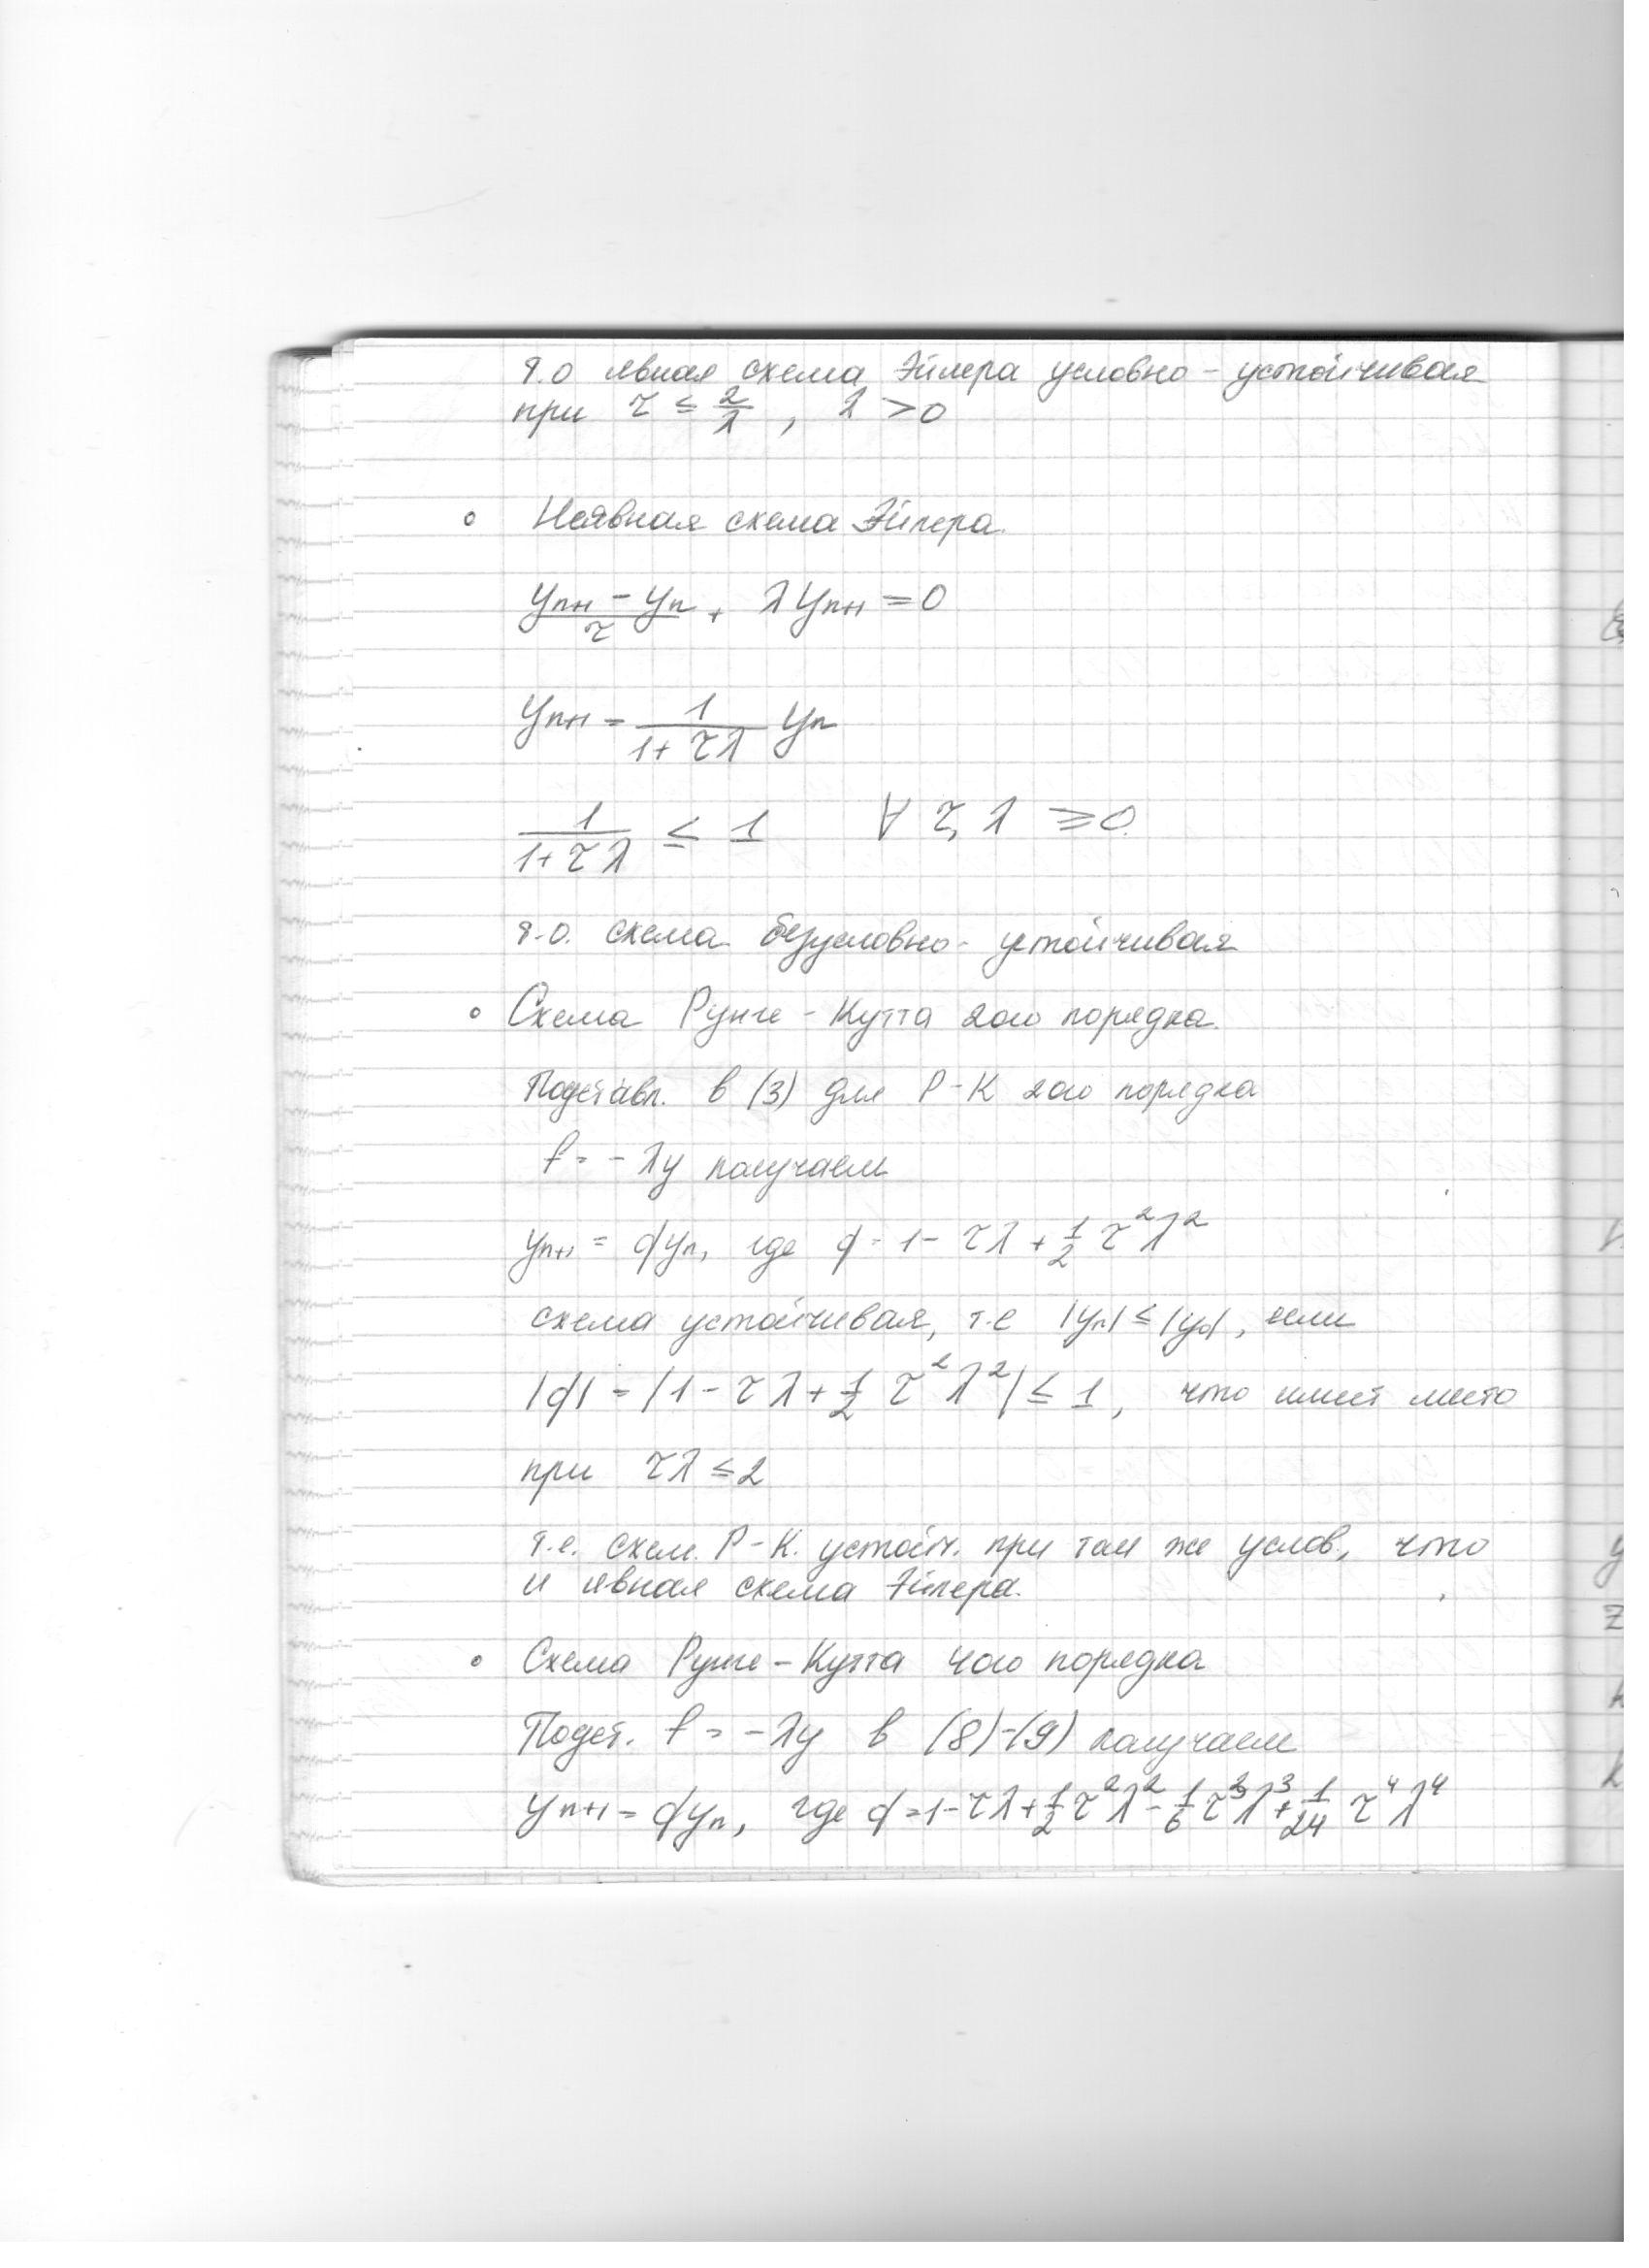 т.о явная схема Эйлера условно-устойчивая
при τ ≤ 2/λ , λ > 0
∘ Неявная схема Эйлера.
(yₙ₊₁ - yₙ)/τ + λyₙ₊₁ = 0
yₙ₊₁ = 1/(1+τλ) yₙ
1/(1+τλ) ≤ 1 ∀ τ, λ ≥ 0.
т.о. схема безусловно-устойчивая
∘ Схема Рунге-Кутта 2ого порядка.
Подставл. в (3) для Р-К 2ого порядка
f = -λy получаем
yₙ₊₁ = qyₙ, где q = 1 - τλ + 1/2 τ²λ²
схема устойчивая, т.е |yₙ| ≤ |y₀|, если
|q| = |1 - τλ + 1/2 τ²λ²| ≤ 1, что имеет место
при τλ ≤ 2
т.е. схем. Р-К. устойч. при том же услов., что
и явная схема Эйлера.
∘ Схема Рунге-Кутта 4ого порядка
Подст. f = -λy в (8)-(9) получаем
yₙ₊₁ = qyₙ, где q = 1 - τλ + 1/2 τ²λ² - 1/6 τ³λ³ + 1/24 τ⁴λ⁴